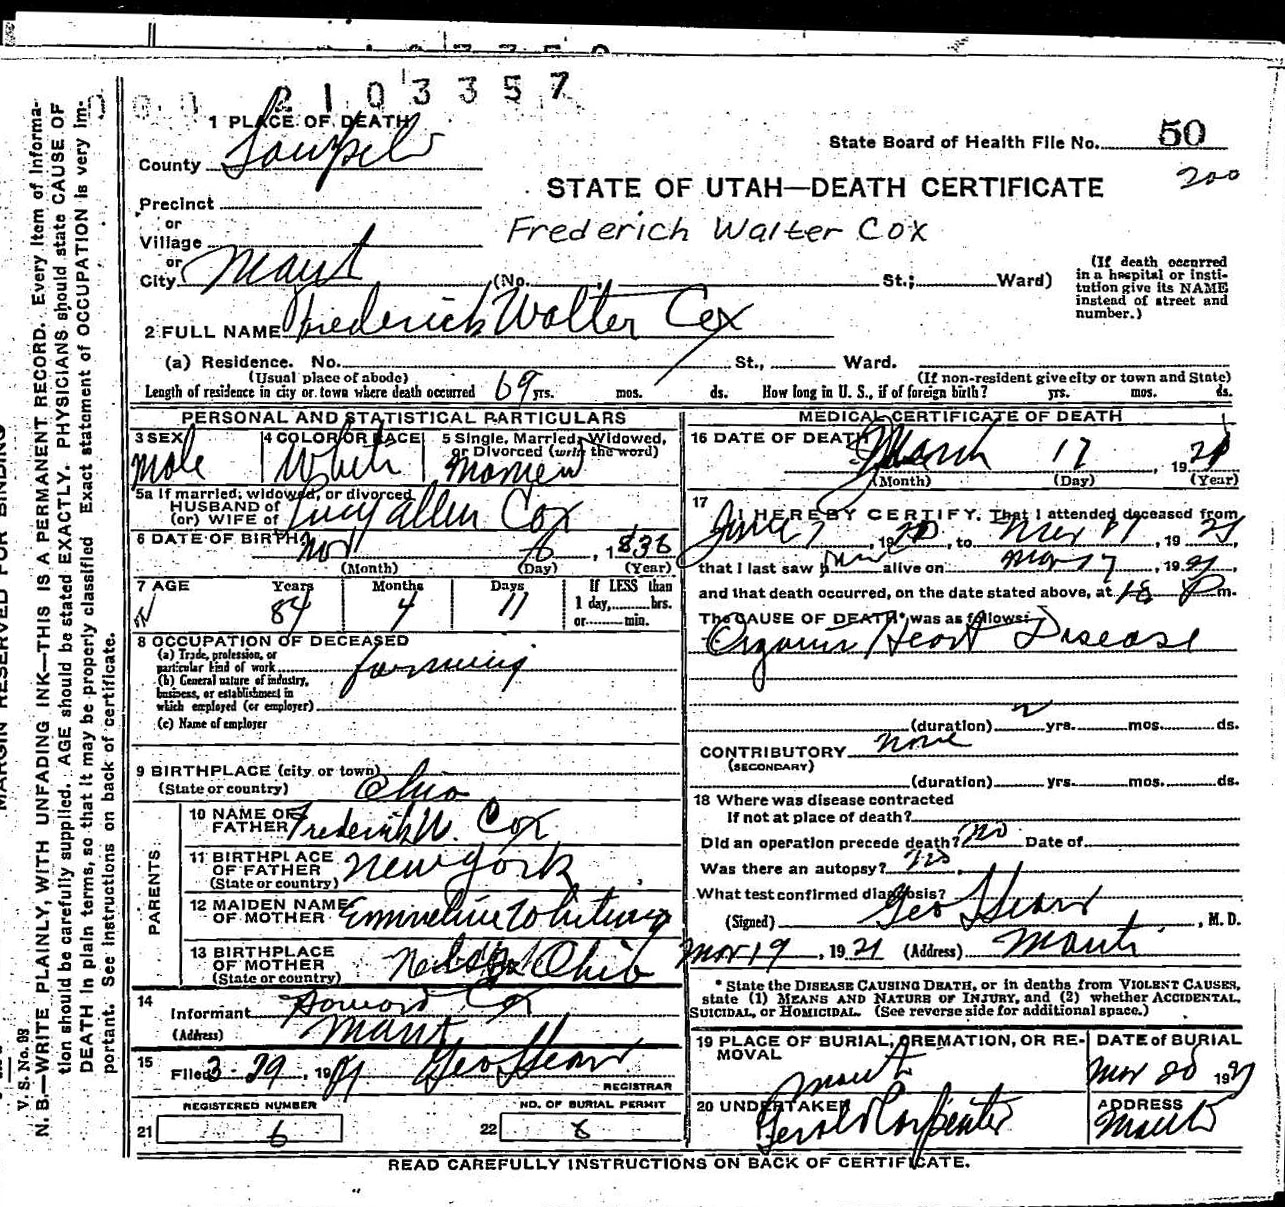 2103357
1 PLACE OF DEATH
County Sanpete
State Board of Health File No. 50
200
STATE OF UTAH—DEATH CERTIFICATE
Precinct
or
Village
Frederich Walter Cox
or
City Manti (No. St.; Ward)
(If death occurred in a hospital or institution give its NAME instead of street and number.)
2 FULL NAME Frederick Walter Cox
(a) Residence. No. St., Ward.
(Usual place of abode) (If non-resident give city or town and State)
Length of residence in city or town where death occurred 69 yrs. mos. ds. How long in U. S., if of foreign birth? yrs. mos. ds.
PERSONAL AND STATISTICAL PARTICULARS
3 SEX 4 COLOR OR RACE 5 Single, Married, Widowed, or Divorced (write the word)
Male White Married
5a If married, widowed, or divorced
HUSBAND of
(or) WIFE of Lucy Allen Cox
6 DATE OF BIRTH Nov 6, 1836
(Month) (Day) (Year)
7 AGE Years Months Days If LESS than
1 day, hrs.
or min.
84 4 11
8 OCCUPATION OF DECEASED
(a) Trade, profession, or
particular kind of work farming
(b) General nature of industry,
business, or establishment in
which employed (or employer)
(c) Name of employer
9 BIRTHPLACE (city or town)
(State or country) Ohio
PARENTS
10 NAME OF
FATHER Frederick W. Cox
11 BIRTHPLACE
OF FATHER New York
(State or country)
12 MAIDEN NAME
OF MOTHER Emmeline Whiting
13 BIRTHPLACE
OF MOTHER Ohio
(State or country)
14
Informant Howard Cox
(Address) Manti
15
Filed 3-29, 19 21 Geo
REGISTRAR
REGISTERED NUMBER NO. OF BURIAL PERMIT
21 6 22 8
MEDICAL CERTIFICATE OF DEATH
16 DATE OF DEATH March 17, 1921
(Month) (Day) (Year)
17 I HEREBY CERTIFY, That I attended deceased from
June 7, 1920, to Mar 17, 1921,
that I last saw him alive on Mar 17, 1921,
and that death occurred, on the date stated above, at P m.
The CAUSE OF DEATH* was as follows:
Organic Heart Disease
(duration) 2 yrs. mos. ds.
CONTRIBUTORY none
(SECONDARY)
(duration) yrs. mos. ds.
18 Where was disease contracted
If not at place of death?
Did an operation precede death? no Date of
Was there an autopsy? no
What test confirmed diagnosis?
(Signed) Geo, M. D.
Mar 19, 1921 (Address) Manti
* State the DISEASE CAUSING DEATH, or in deaths from VIOLENT CAUSES,
state (1) MEANS AND NATURE OF INJURY, and (2) whether ACCIDENTAL,
SUICIDAL, or HOMICIDAL. (See reverse side for additional space.)
19 PLACE OF BURIAL, CREMATION, OR REMOVAL DATE of BURIAL
Manti Mar 20 1921
20 UNDERTAKER ADDRESS
Carpenter Manti
READ CAREFULLY INSTRUCTIONS ON BACK OF CERTIFICATE.
MARGIN RESERVED FOR BINDING
V. S. No. 98
N. B.—WRITE PLAINLY, WITH UNFADING INK—THIS IS A PERMANENT RECORD. Every item of informa-
tion should be carefully supplied. AGE should be stated EXACTLY. PHYSICIANS should state CAUSE OF
DEATH in plain terms, so that it may be properly classified. Exact statement of OCCUPATION is very im-
portant. See instructions on back of certificate.